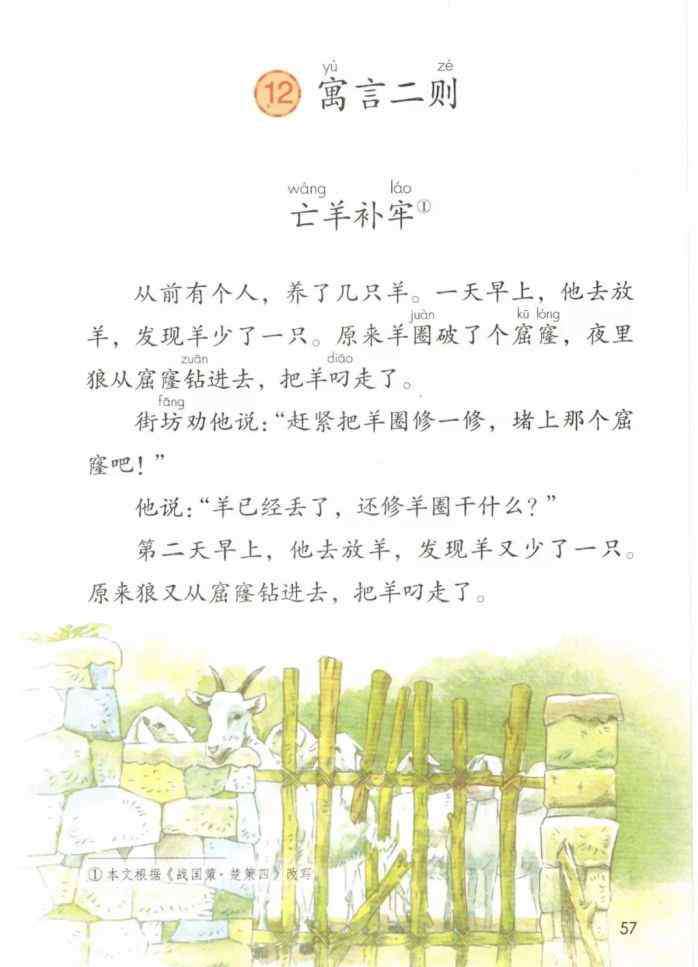 yù zé
12 寓言二则
wáng láo
亡羊补牢①
从前有个人，养了几只羊。一天早上，他去放
羊，发现羊少了一只。原来羊圈破了个窟窿，夜里
juàn kū lóng
狼从窟窿钻进去，把羊叼走了。
zuān diāo
街坊劝他说：“赶紧把羊圈修一修，堵上那个窟
fāng
窿吧！”
他说：“羊已经丢了，还修羊圈干什么？”
第二天早上，他去放羊，发现羊又少了一只。
原来狼又从窟窿钻进去，把羊叼走了。
①本文根据《战国策·楚策四》改写。
57